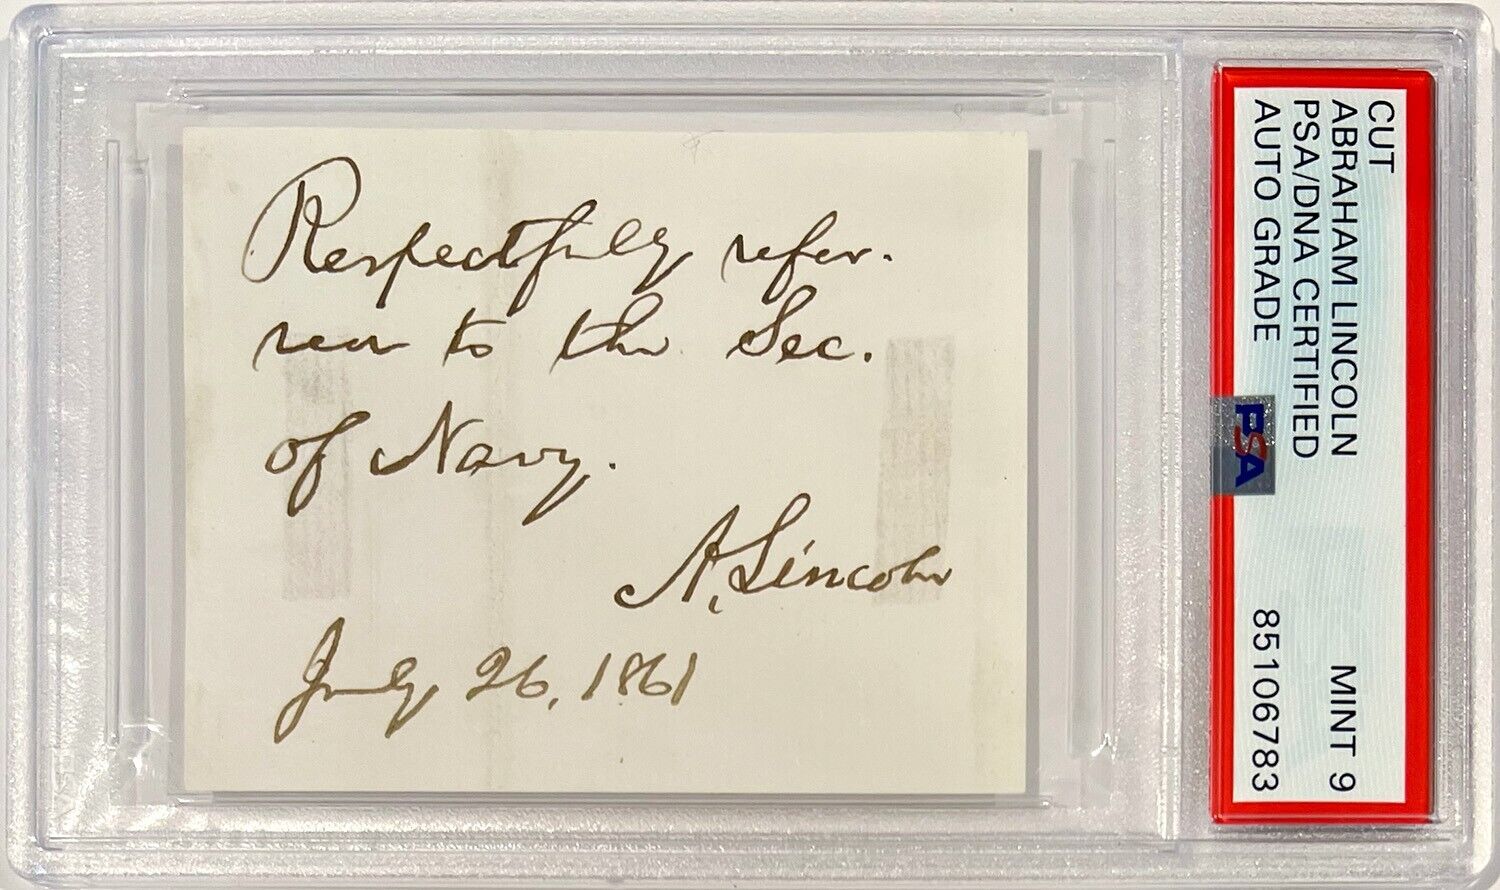 Respectfully refer.
red to the Sec.
of Navy.
A. Lincoln
July 26, 1861
CUT
ABRAHAM LINCOLN
PSA/DNA CERTIFIED
AUTO GRADE
MINT 9
85106783
PSA